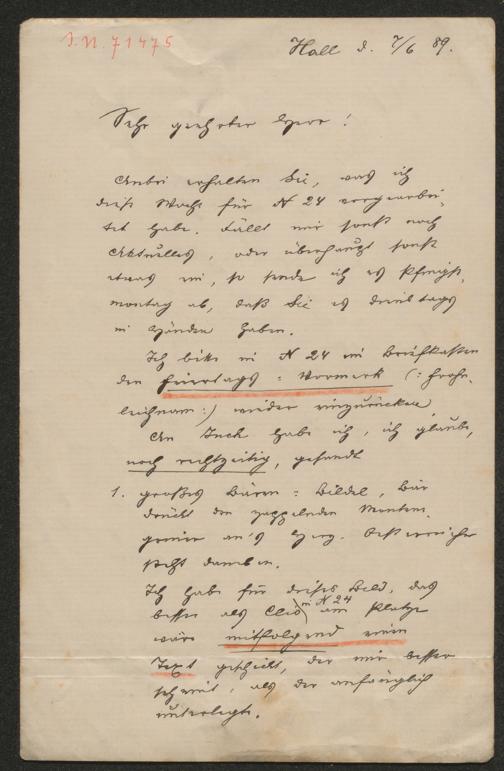 I.N. 71475
Hall d. 7/6 89.
Sehr geehrter Herr!
Anbei erhalten Sie, was ich
diese Woche für N 24 vorgearbei-
tet habe. Fällt mir sonst noch
Aktuelles, oder überhaupt sonst
etwas ein, so sende ich es Pfingst-
montag ab, daß Sie es dienstags
in Händen haben.
Ich bitte in N 24 im Briefkasten
den Feiertags = Vormerk (: Frohn-
leichnam :) wieder einzurücken
An habe ich, ich glaube,
noch rechtzeitig, gesandt
1. großes Bären = Bildel, Bär
drückt den zappelnden Monten-
griner an's Herz. Oesterreicher
steht daneben.
Ich habe für dieses Bild, das
besser als Clio in N 24 am Platze
wäre mitfolgend einen
Text geschickt, der mir besser
scheint, als der anfänglich
unterlegte.